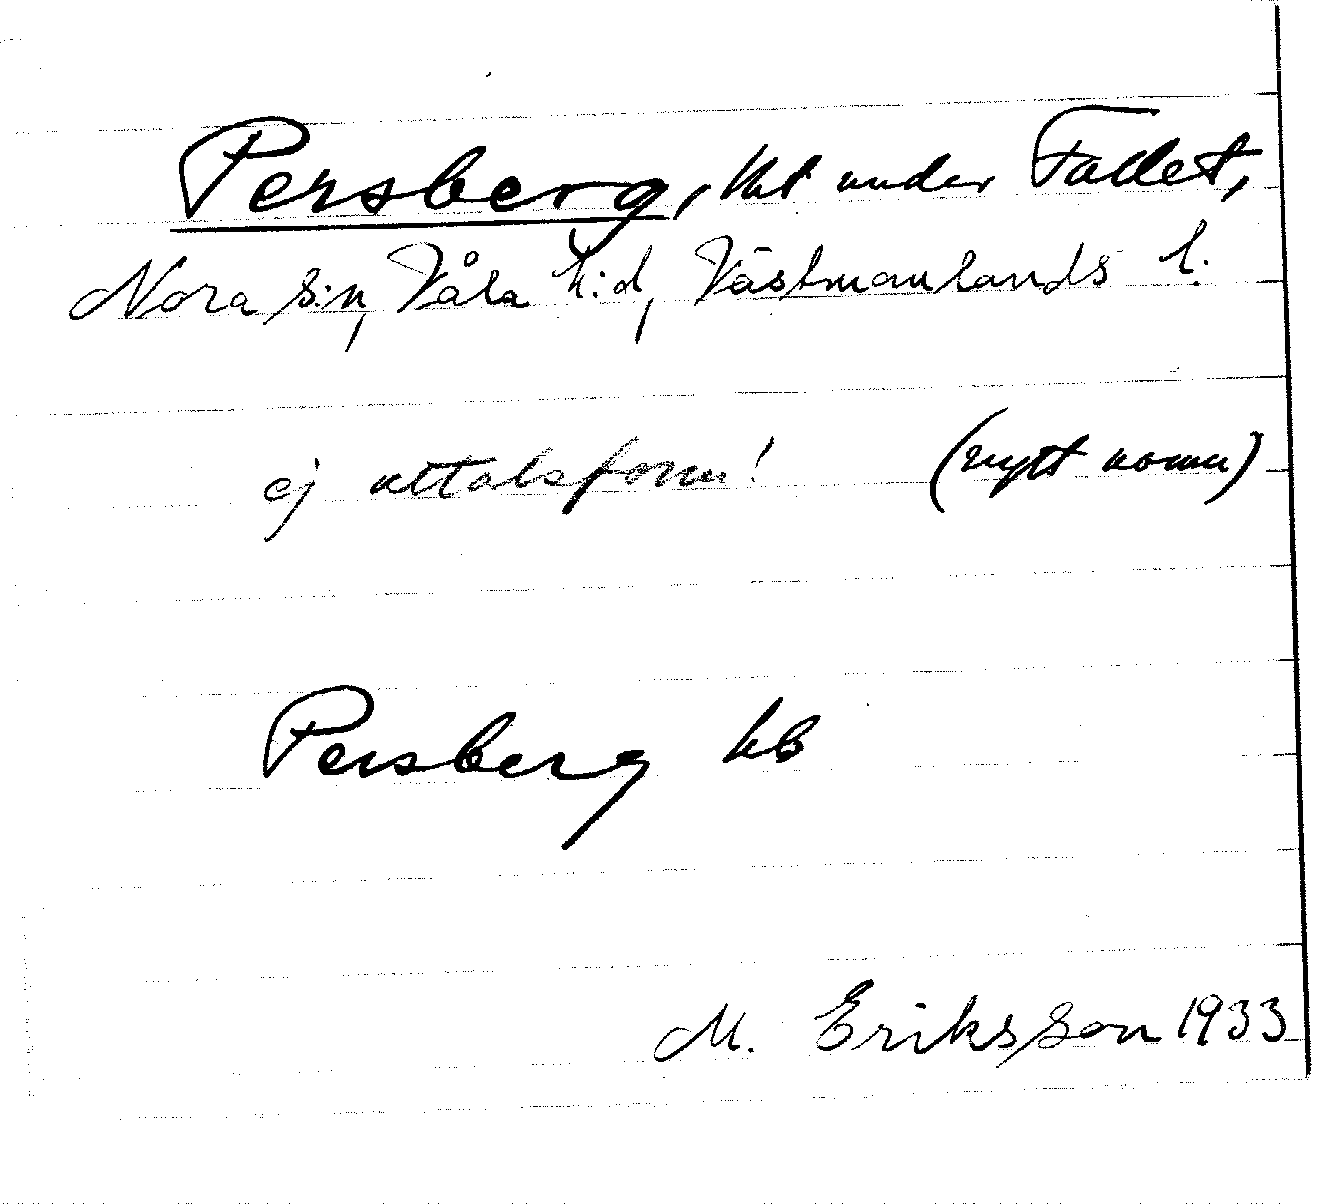 Persberg, lht under Fallet,
Nora s:n, Våla h:d, Västmanlands l.
ej uttalsform! (nytt namn)
Persberg kb
M. Eriksson 1933